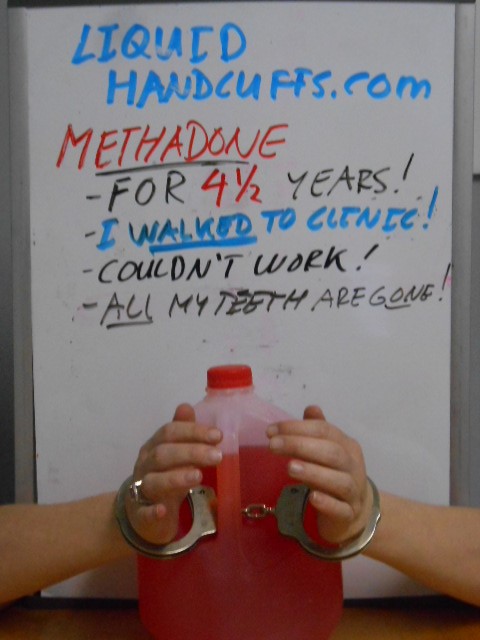 LIQUID
HANDCUFFS.com
METHADONE
-FOR 4½ YEARS!
-I WALKED TO CLINIC!
-COULDN'T WORK!
-ALL MY TEETH ARE GONE!